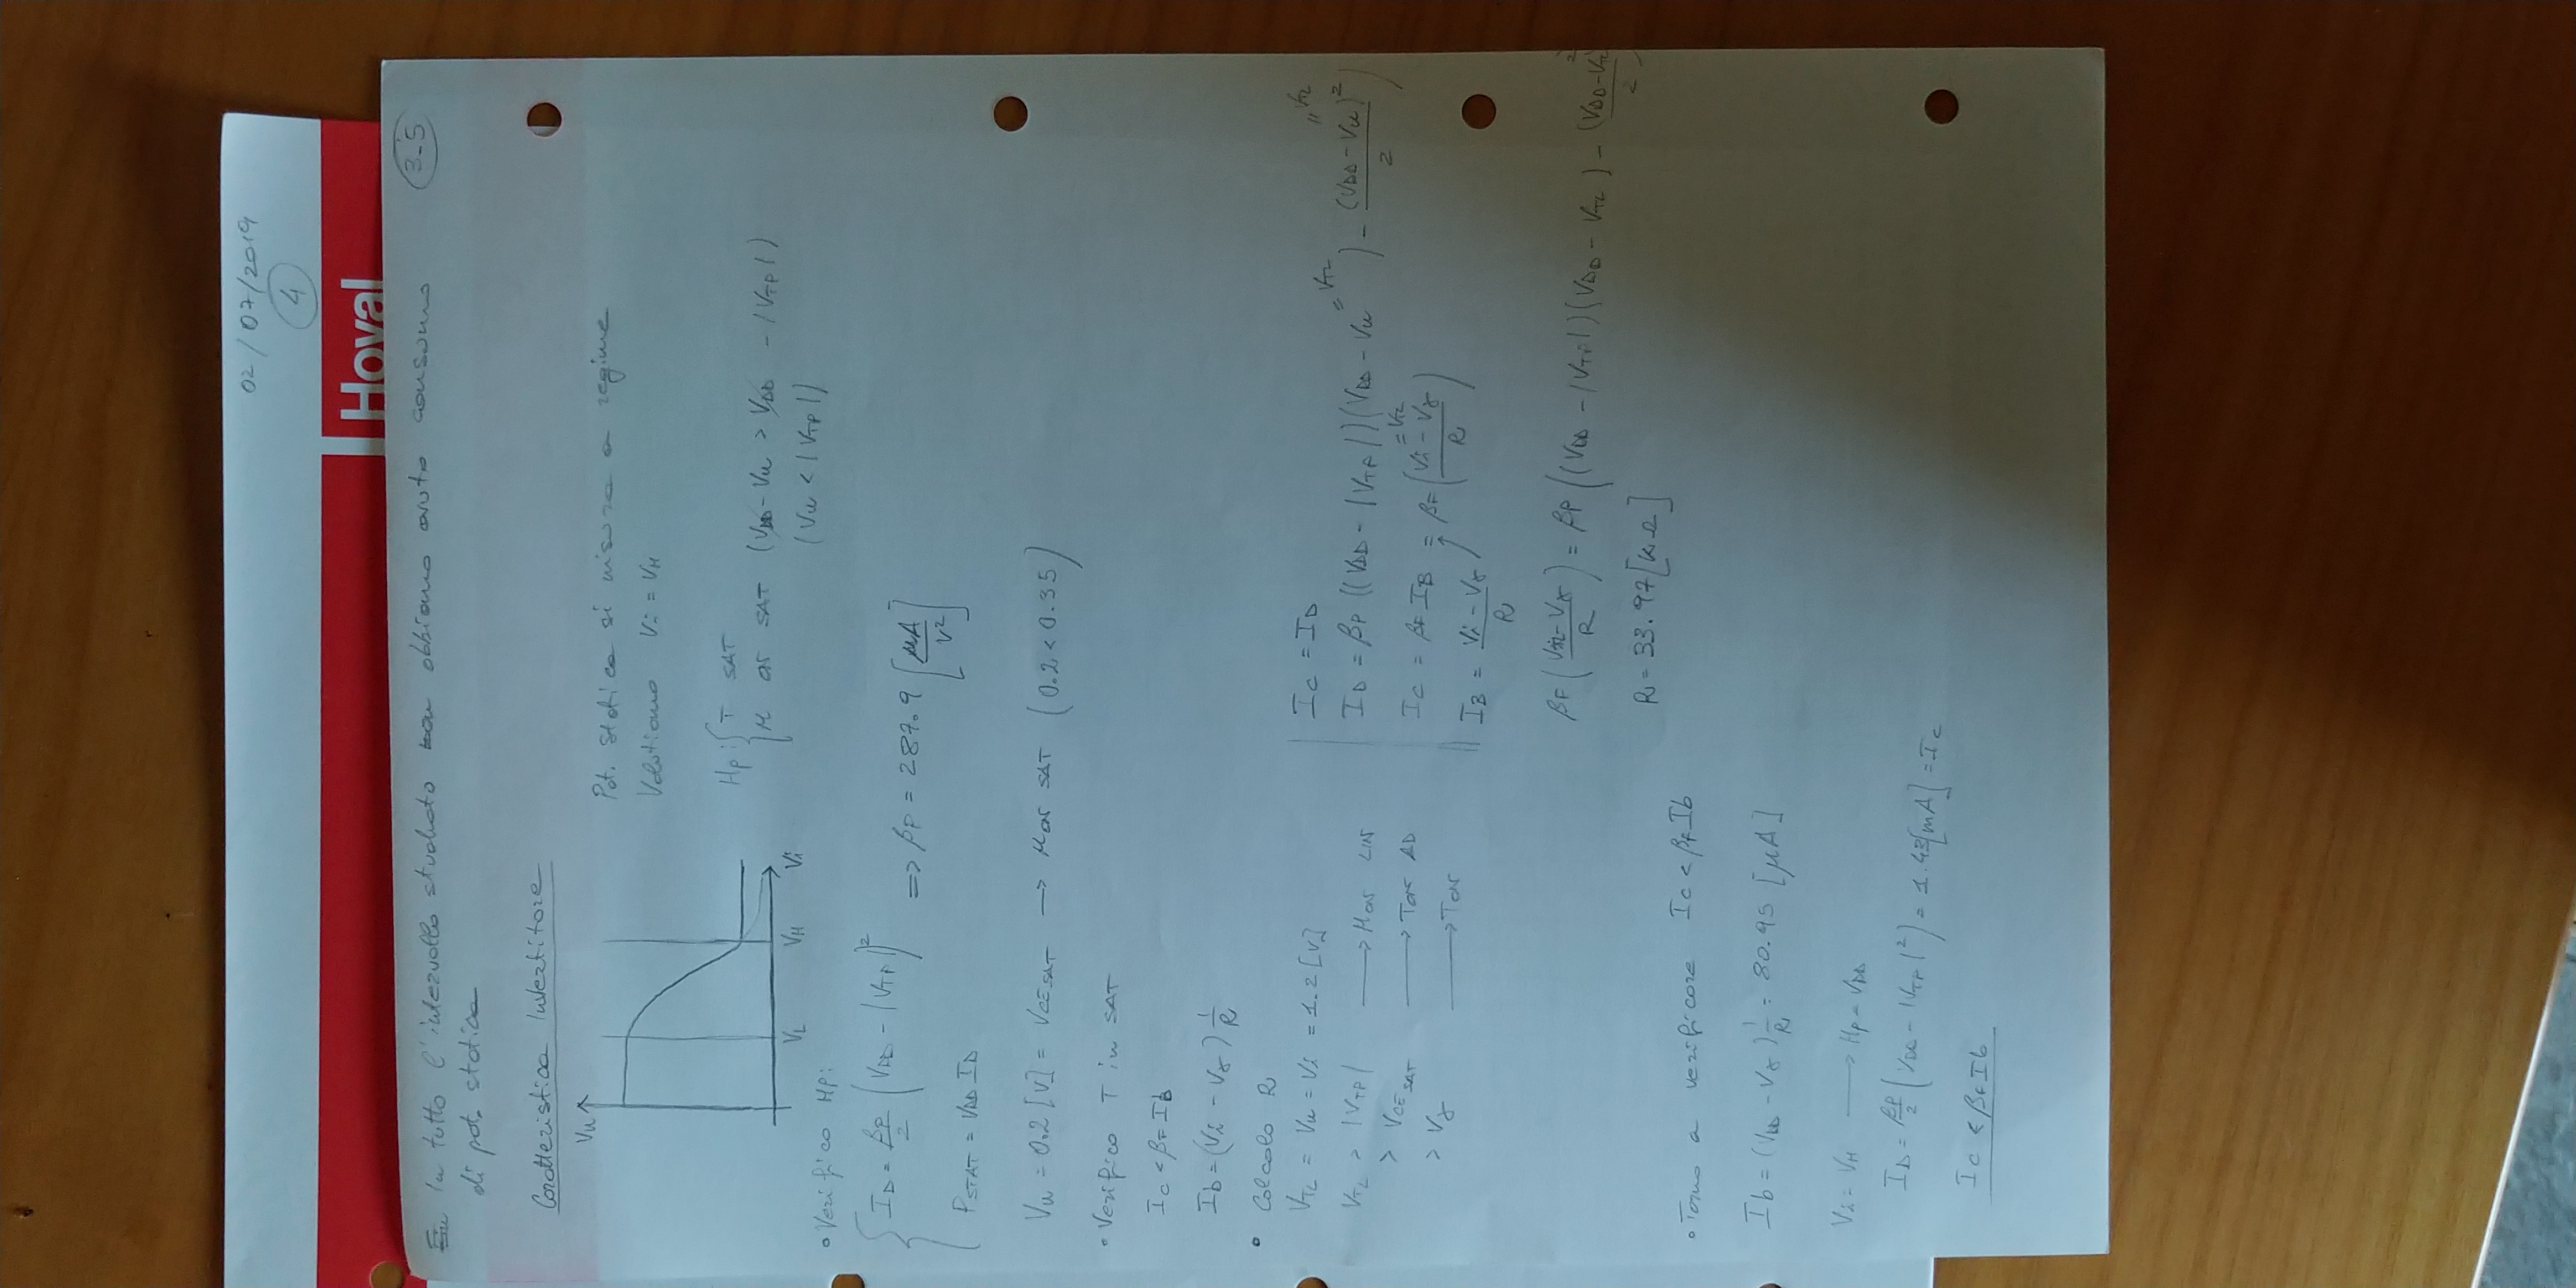 02/07/2019
4
Hoval
3-5
In tutto l'intervallo studiato abbiamo avuto consumo
di pot. statica
Caratteristica Invertitore
Vu
VL VH Vi
Pot. statica si misura a regime
Valutiamo Vi = VH
Hp: { T SAT
M on SAT (VDD - Vu > VDD - |VTP|)
(Vu < |VTP|)
• Verifico Hp:
{ ID = βP/2 (VDD - |VTP|)²
=> βP = 287.9 [μA/V²]
PSTAT = VDD ID
Vu = 0.2 [V] = VCESAT → M on SAT (0.2 < 0.35)
• Verifico T in SAT
Ic < βF Ib
Ib = (Vi - Vγ) 1/R
• Calcolo R
VTL = Vu = Vi = 1.2 [V]
VTL > |VTP| → M on LIN
> VCESAT → T on AD
> Vγ → T on
IC = ID
ID = βP ((VDD - |VTP|)(VDD - Vu = VTL) - (VDD - Vu)²/2) " VTL
IC = βF IB = βF ((Vi - Vγ)/R) = VTL
IB = (Vi - Vγ)/R
βF ((VTL - Vγ)/R) = βP ((VDD - |VTP|)(VDD - VTL) - (VDD - VTL)²/2)
R = 33.97 [kΩ]
• Torno a verificare Ic < βF Ib
Ib = (VDD - Vγ) 1/R = 80.95 [μA]
Vi = VH → Hp = VDD
ID = βP/2 (VDD - |VTP|²) = 1.43 [mA] = Ic
Ic < βF Ib